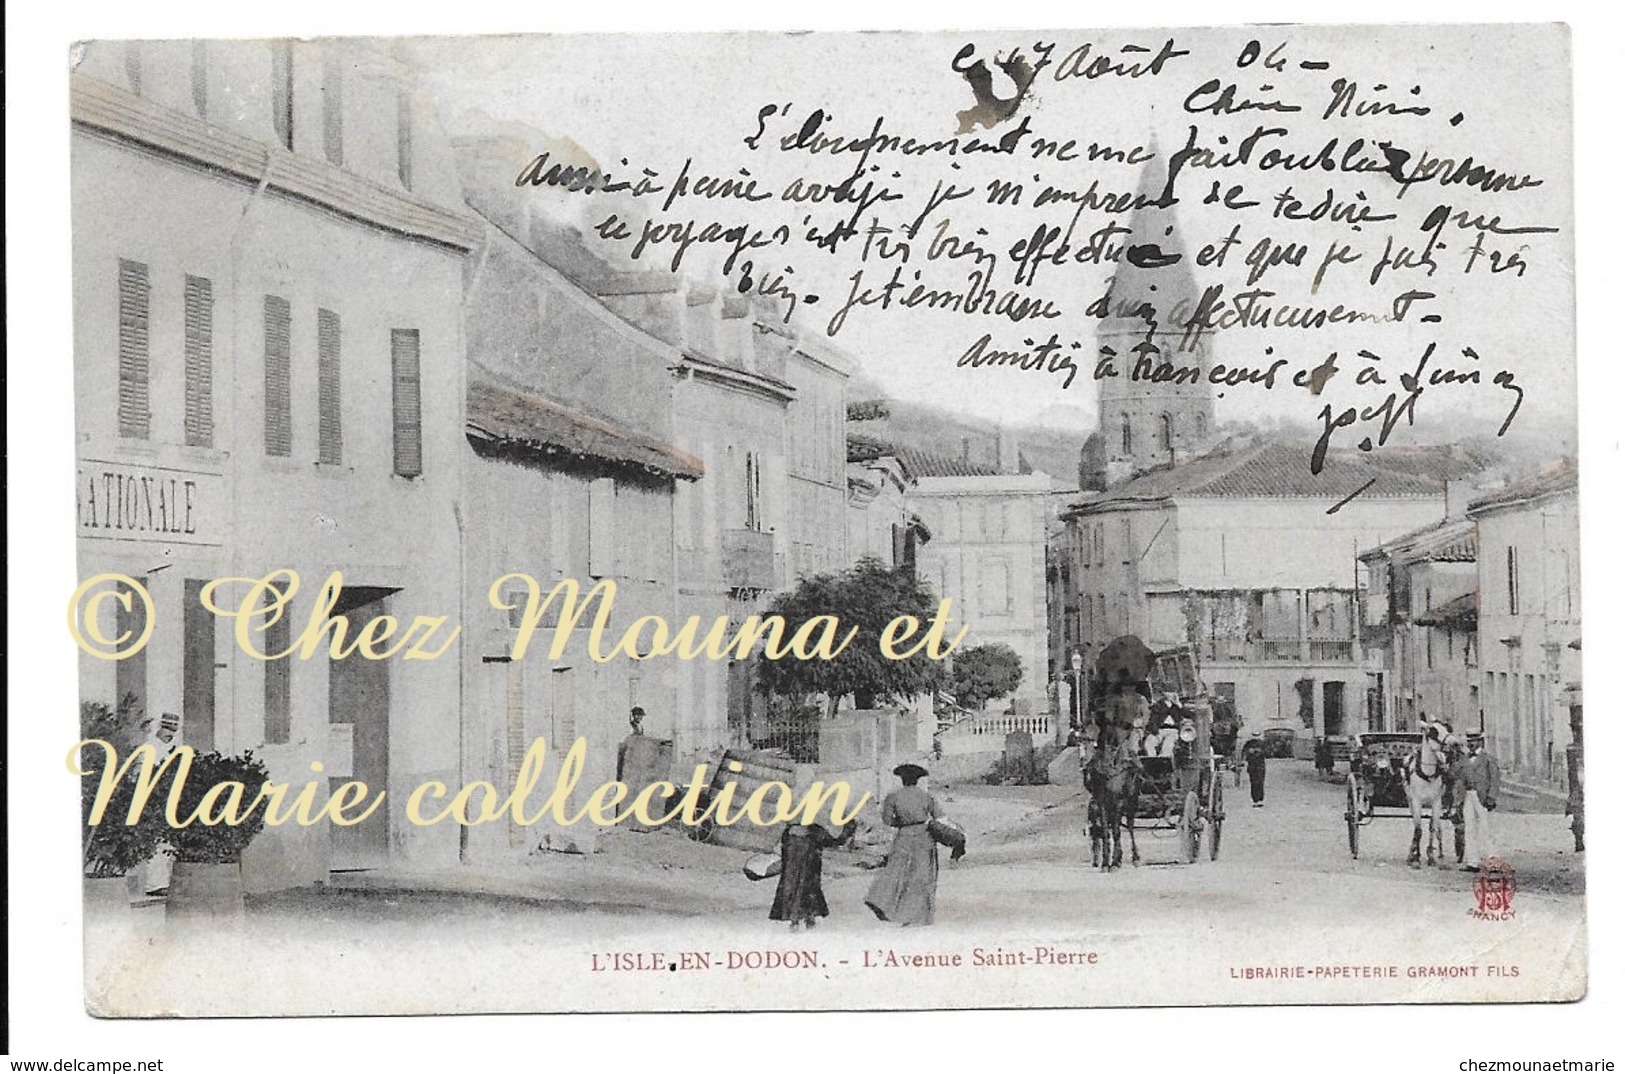 ce 17 Août 04 -
Chère Ninie.
L'éloignement ne me fait oublier personne
Aussi à peine arrivé je m'empresse de te dire que
ce voyage s'est très bien effectué et que je vais très
bien. Je t'embrasse bien affectueusement -
Amitiés à François et à
NATIONALE
© Chez Mouna et
Marie collection
NANCY
L'ISLE-EN-DODON. - L'Avenue Saint-Pierre
LIBRAIRIE-PAPETERIE GRAMONT FILS
www.delcampe.net
chezmounaetmarie